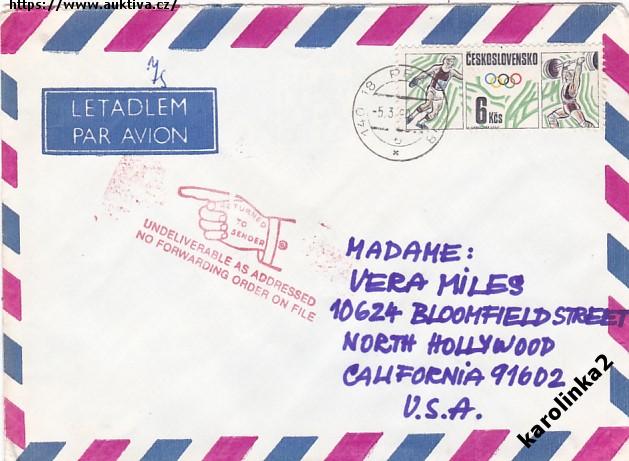 https://www.auktiva.cz/
LETADLEM
PAR AVION
ČESKOSLOVENSKO
6 Kčs
140 18
-5.3.
RETURNED
TO
SENDER
UNDELIVERABLE AS ADDRESSED
NO FORWARDING ORDER ON FILE
MADAME:
VERA MILES
10624 BLOOMFIELD STREET
NORTH HOLLYWOOD
CALIFORNIA 91602
U.S.A.
karolinka2